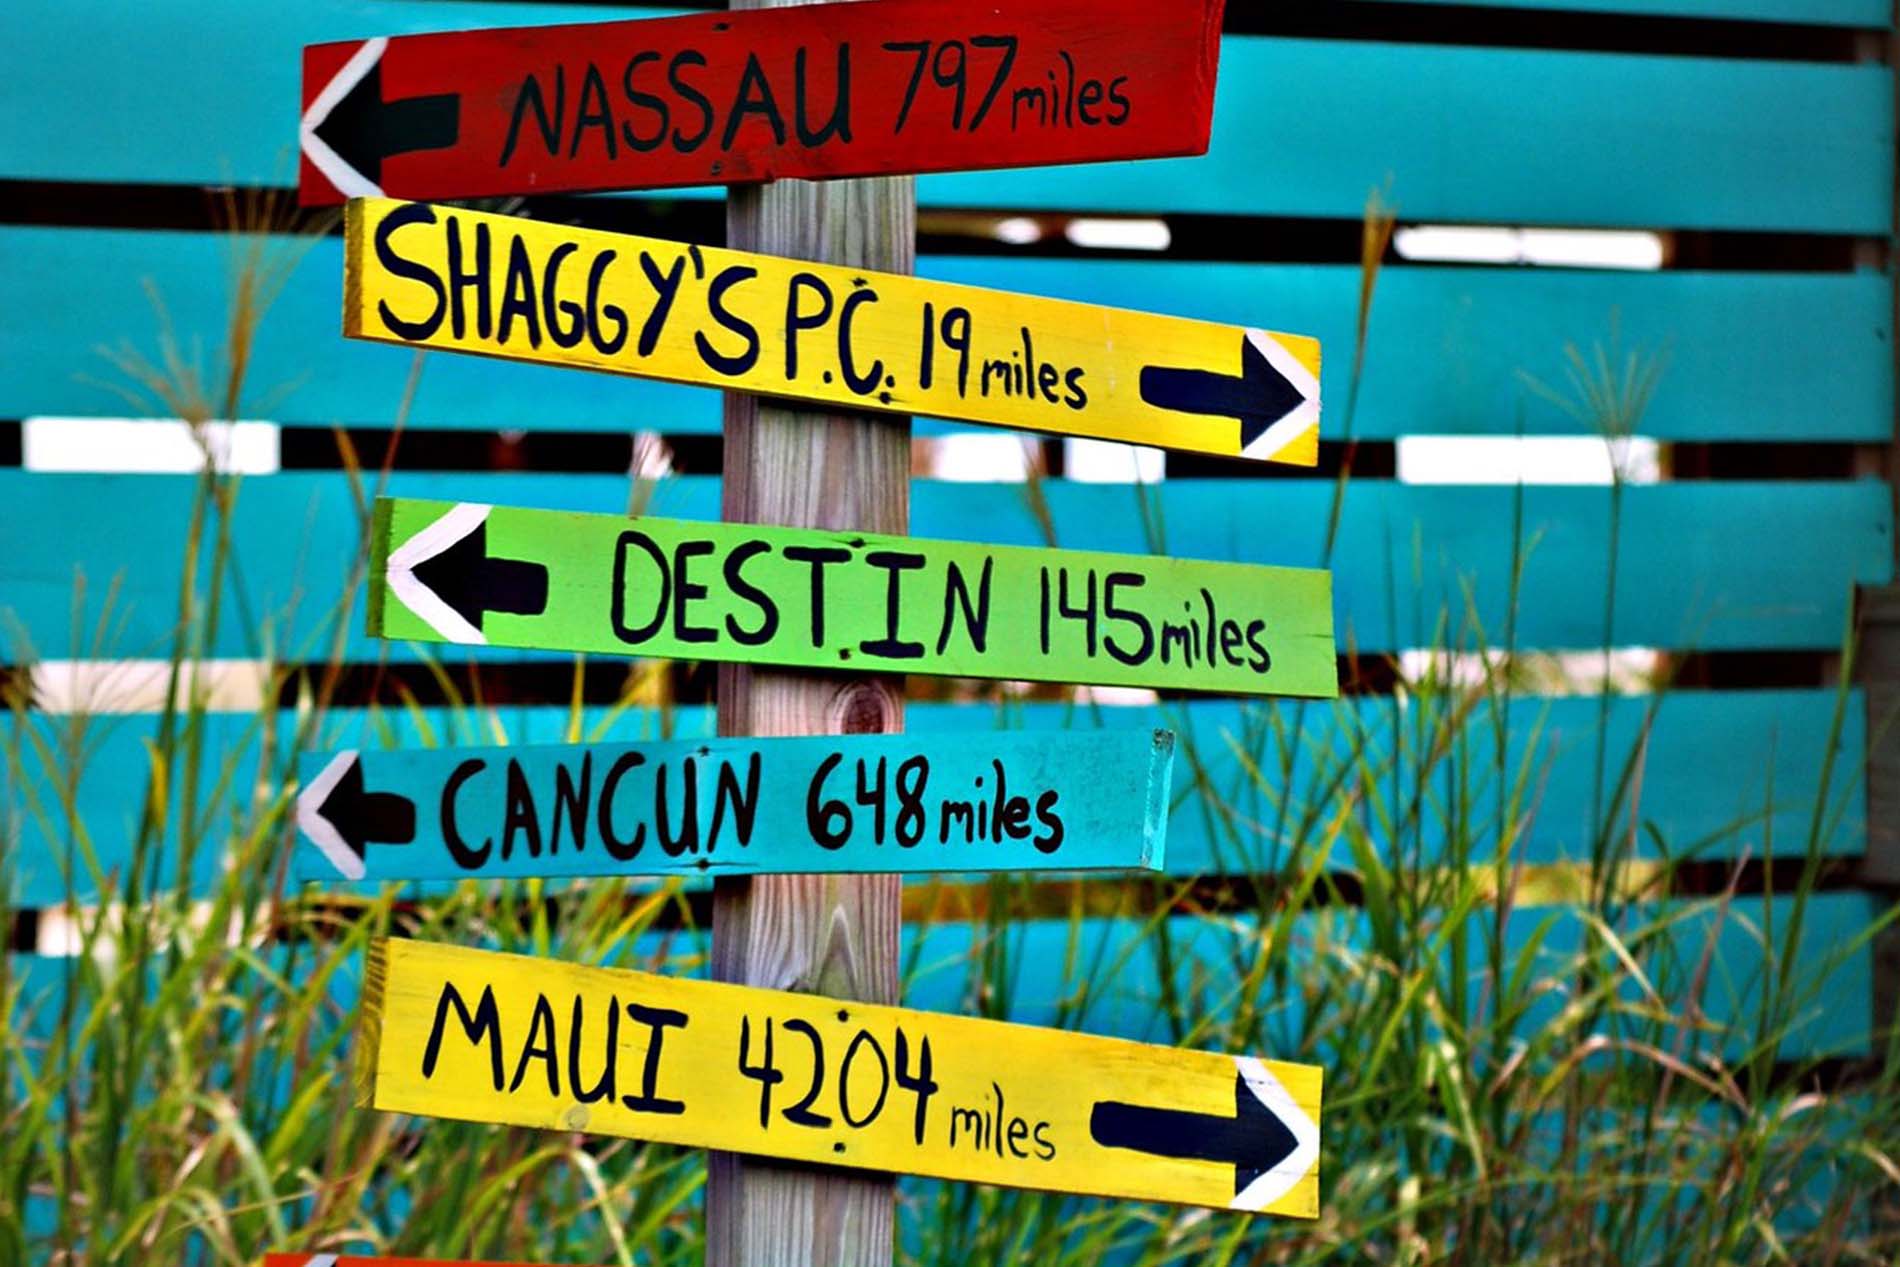 NASSAU 797 miles
SHAGGY'S P.C. 19 miles
DESTIN 145 miles
CANCUN 648 miles
MAUI 4204 miles